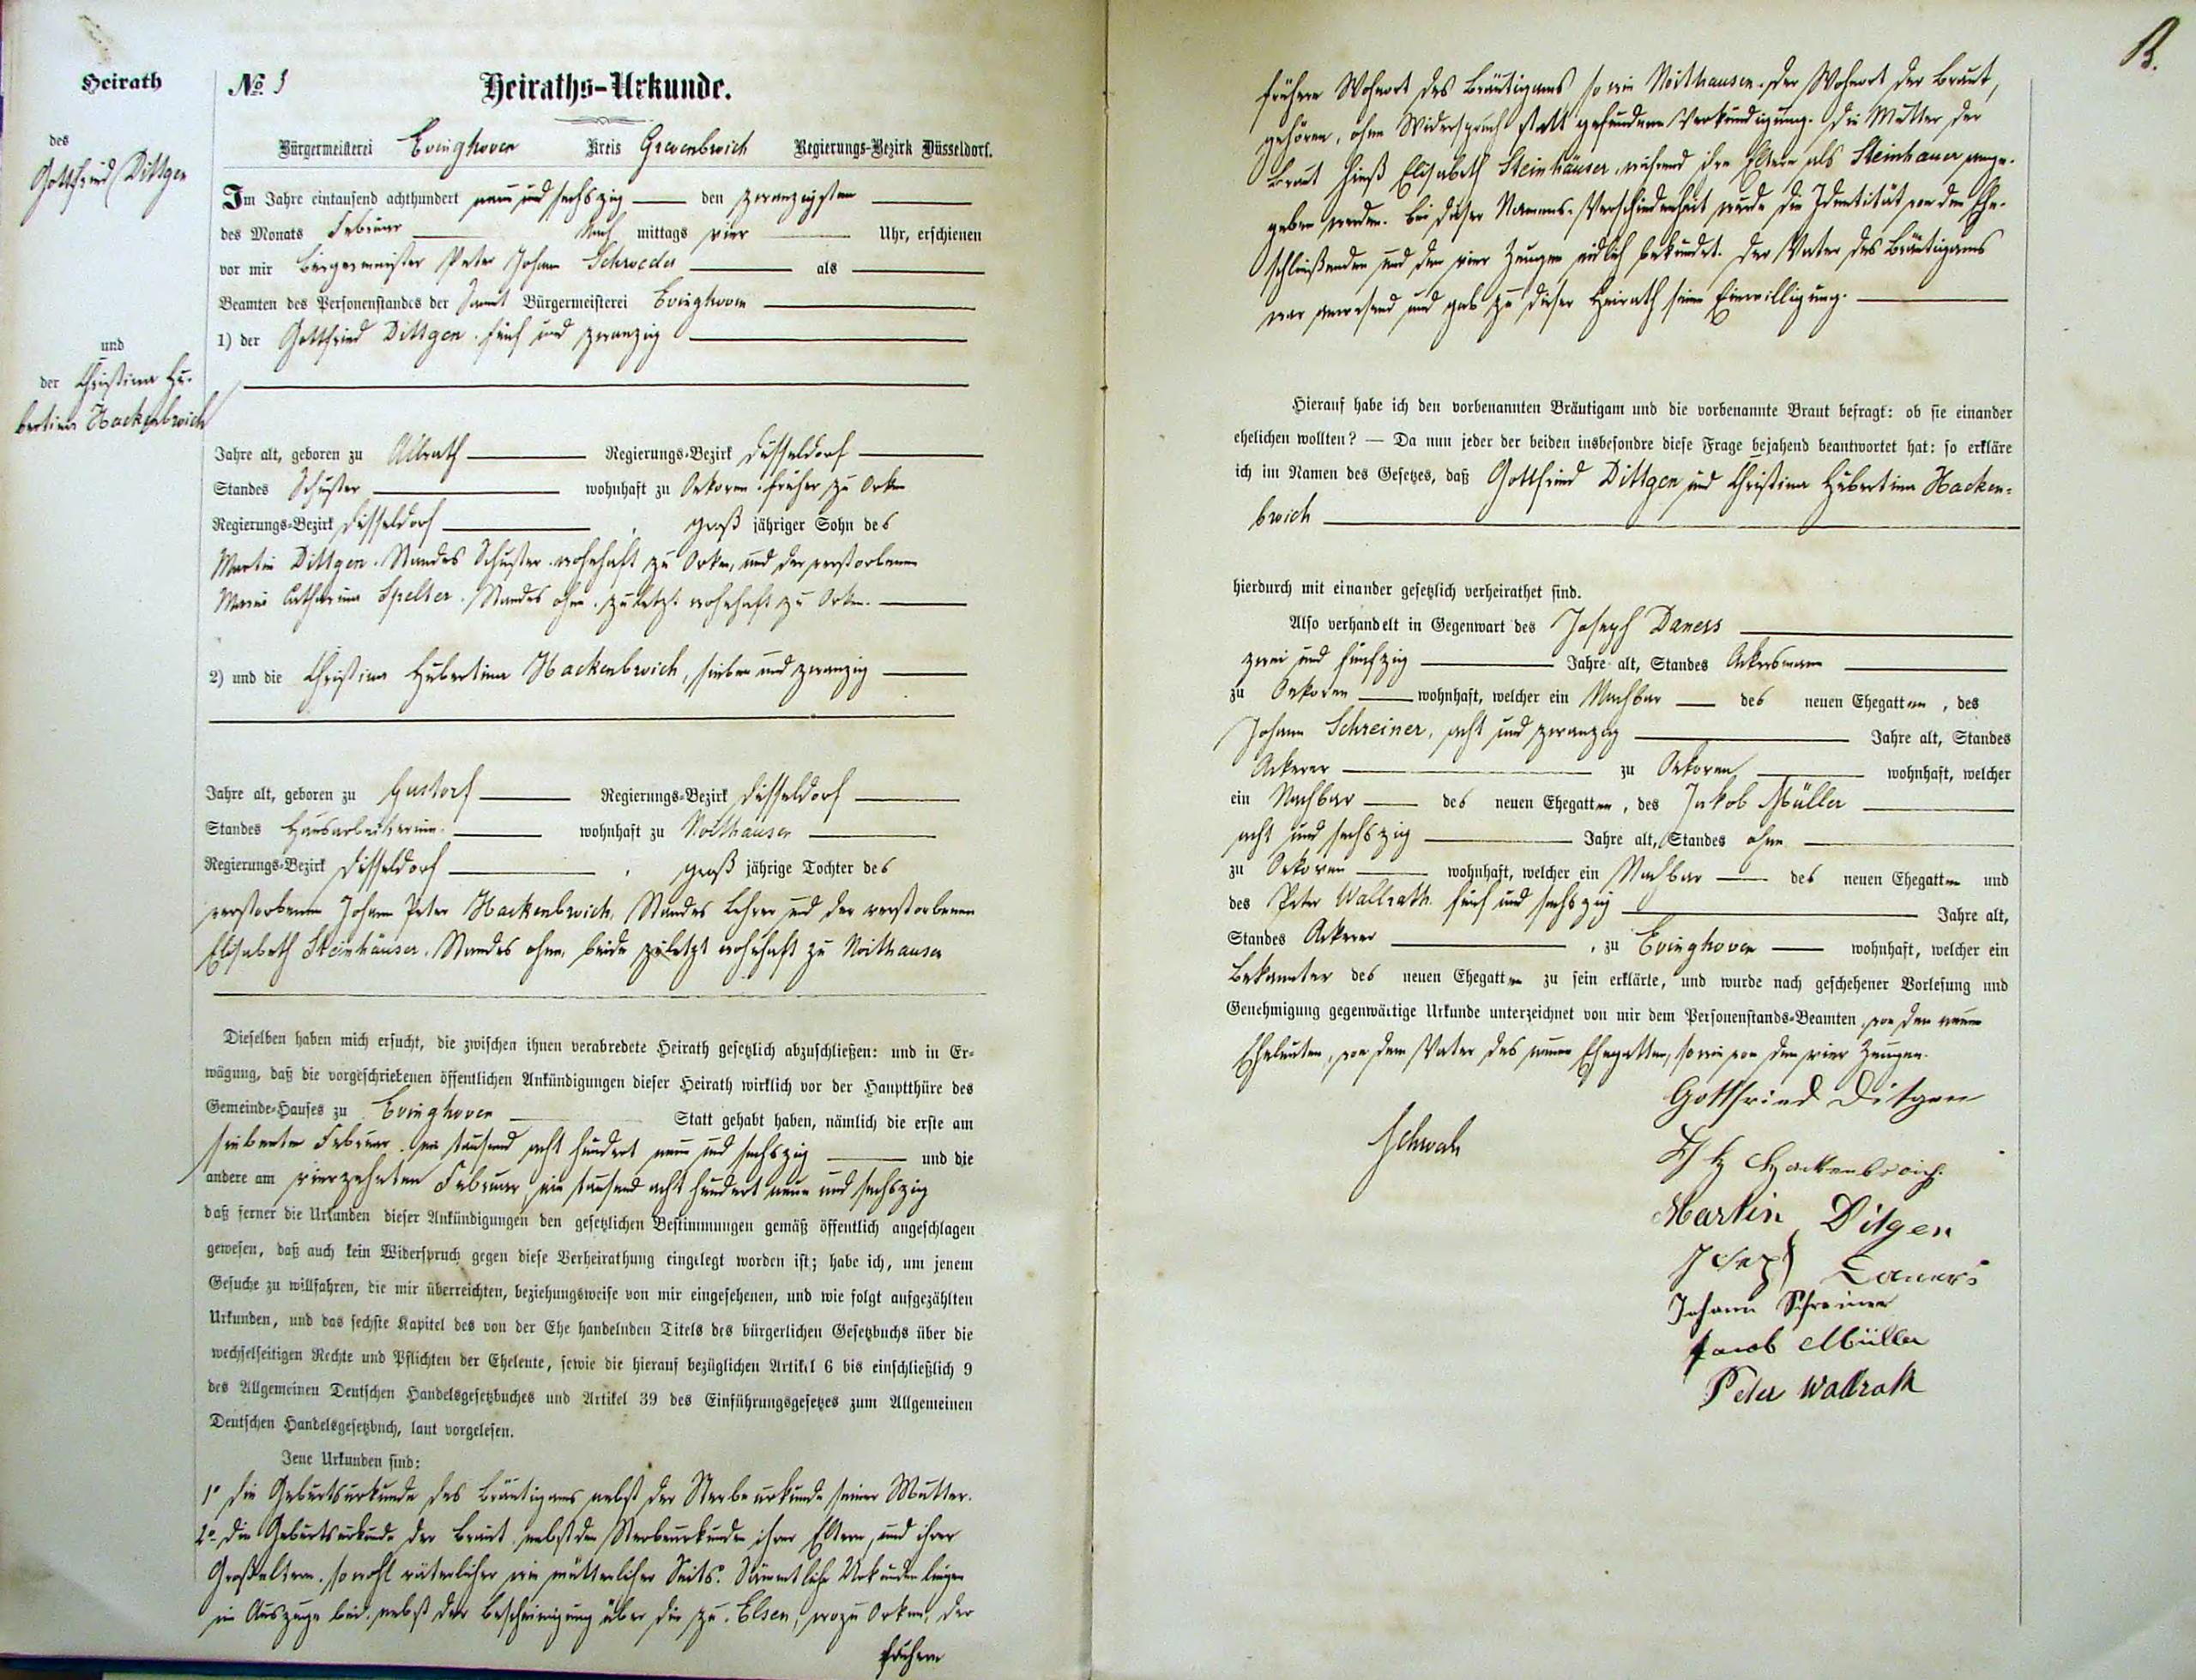 Heirath
des
Gottfried Dittgen
und
der Christina Hu-
bertina Hackenbroich
No. 3
Heiraths-Urkunde.
Bürgermeisterei Evinghoven Kreis Grevenbroich Regierungs-Bezirk Düsseldorf.
Im Jahre eintausend achthundert neun und sechszig den zwanzigsten
des Monats Februar Nach mittags vier Uhr, erschienen
vor mir Bürgermeister Peter Johann Schroeder als
Beamten des Personenstandes der Samt Bürgermeisterei Evinghoven
1) der Gottfried Dittgen, fünf und zwanzig
Jahre alt, geboren zu Allrath Regierungs-Bezirk Düsseldorf
Standes Schuster wohnhaft zu Oekoven, früher zu Orken
Regierungs-Bezirk Düsseldorf, groß jähriger Sohn des
Martin Dittgen, Standes Schuster, wohnhaft zu Orken, und der verstorbenen
Maria Catharina Spelter, Standes ohne, zuletzt wohnhaft zu Orken.
2) und die Christina Hubertina Hackenbroich, sieben und zwanzig
Jahre alt, geboren zu Gustorf Regierungs-Bezirk Düsseldorf
Standes Hausarbeiterinn. wohnhaft zu Noithausen
Regierungs-Bezirk Düsseldorf, groß jährige Tochter des
verstorbenen Johann Peter Hackenbroich, Standes Lehrer und der verstorbenen
Elisabeth Steinhäuser, Standes ohne, beide zuletzt wohnhaft zu Noithausen
Dieselben haben mich ersucht, die zwischen ihnen verabredete Heirath gesetzlich abzuschließen: und in Er-
wägung, daß die vorgeschriebenen öffentlichen Ankündigungen dieser Heirath wirklich vor der Hauptthüre des
Gemeinde-Hauses zu Evinghoven Statt gehabt haben, nämlich die erste am
siebenten Februar, ein tausend acht hundert neun und sechszig und die
andere am vierzehnten Februar, ein tausend acht hundert neun und sechszig
daß ferner die Urkunden dieser Ankündigungen den gesetzlichen Bestimmungen gemäß öffentlich angeschlagen
gewesen, daß auch kein Widerspruch gegen diese Verheirathung eingelegt worden ist; habe ich, um jenem
Gesuche zu willfahren, die mir überreichten, beziehungsweise von mir eingesehenen, und wie folgt aufgezählten
Urkunden, und das sechste Kapitel des von der Ehe handelnden Titels des bürgerlichen Gesetzbuchs über die
wechselseitigen Rechte und Pflichten der Eheleute, sowie die hierauf bezüglichen Artikel 6 bis einschließlich 9
des Allgemeinen Deutschen Handelsgesetzbuches und Artikel 39 des Einführungsgesetzes zum Allgemeinen
Deutschen Handelsgesetzbuch, laut vorgelesen.
Jene Urkunden sind:
1o die Geburtsurkunde des Bräutigams nebst der Sterbeurkunde seiner Mutter.
2o die Geburtsurkunde der Braut, nebst den Sterbeurkunden ihrer Eltern, und ihrer
Großeltern, sowohl väterlicher wie mütterlicher Seits. Sämmtliche Urkunden liegen
im Auszuge bei, nebst der Bescheinigung über die zu Elsen, wozu Orken, der
frühere
frühere Wohnort des Bräutigams so wie Noithausen, der Wohnort der Braut,
gehören, ohne Widerspruch statt gefundene Verkündigung. Die Mutter der
Braut hieß Elisabeth Steinhäuser, während ihre Eltern als Steinhauer ange-
geben werden. Bei dieser Namens-Verschiedenheit wurde die Identität von den Ehe-
schließenden und den vier Zeugen eidlich bekundet. Der Vater des Bräutigams
war anwesend und gab zu dieser Heirath seine Einwilligung.
Hierauf habe ich den vorbenannten Bräutigam und die vorbenannte Braut befragt: ob sie einander
ehelichen wollten? — Da nun jeder der beiden insbesondre diese Frage bejahend beantwortet hat: so erkläre
ich im Namen des Gesetzes, daß Gottfried Dittgen und Christina Hubertina Hacken-
broich
hierdurch mit einander gesetzlich verheirathet sind.
Also verhandelt in Gegenwart des Joseph Daners
zwei und fünfzig Jahre alt, Standes Ackersmann
zu Oekoven wohnhaft, welcher ein Nachbar des neuen Ehegatten, des
Johann Schreiner, acht und zwanzig Jahre alt, Standes
Ackerer zu Oekoven wohnhaft, welcher
ein Nachbar des neuen Ehegatten, des Jakob Müller
acht und sechszig Jahre alt, Standes ohne
zu Oekoven wohnhaft, welcher ein Nachbar des neuen Ehegatten und
des Peter Wallrath, fünf und sechszig Jahre alt,
Standes Ackerer, zu Evinghoven wohnhaft, welcher ein
Bekannter des neuen Ehegatten zu sein erklärte, und wurde nach geschehener Vorlesung und
Genehmigung gegenwärtige Urkunde unterzeichnet von mir dem Personenstands-Beamten, von den neuen
Eheleuten, von dem Vater des neuen Ehegatten, sowie von den vier Zeugen.
Gottfried Ditgen
Hackenbroich
Martin Ditgen
Joseph Daners
Johann Schreiner
Jacob Müller
Peter Wallrath